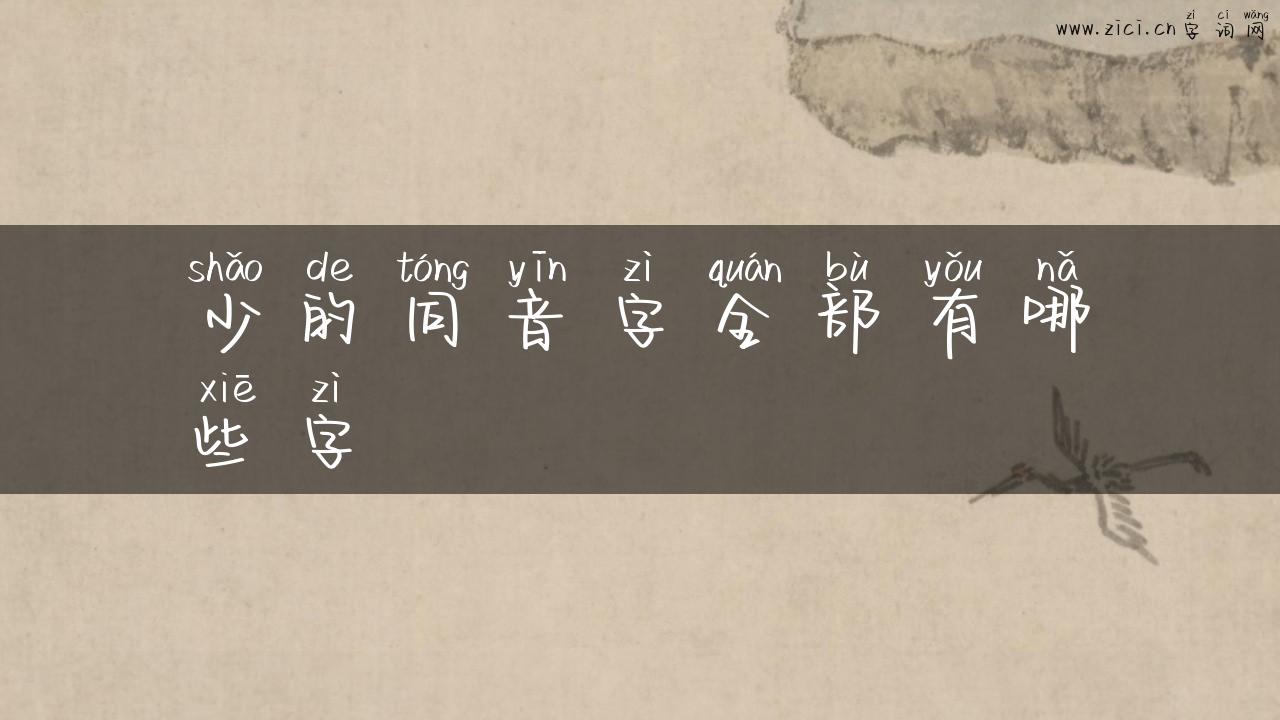 zì cí wǎng
www.zici.cn 字词网
shǎo de tóng yīn zì quán bù yǒu nǎ
少的同音字全部有哪
xiē zì
些字